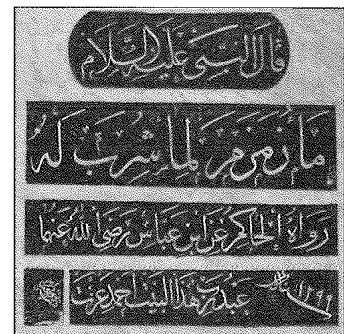 قال النبي عليه السلام
ماء زمزم لما شرب له
رواه الحاكم عن ابن عباس رضى الله عنهما
عبد رب هذا البيت احمد عزت